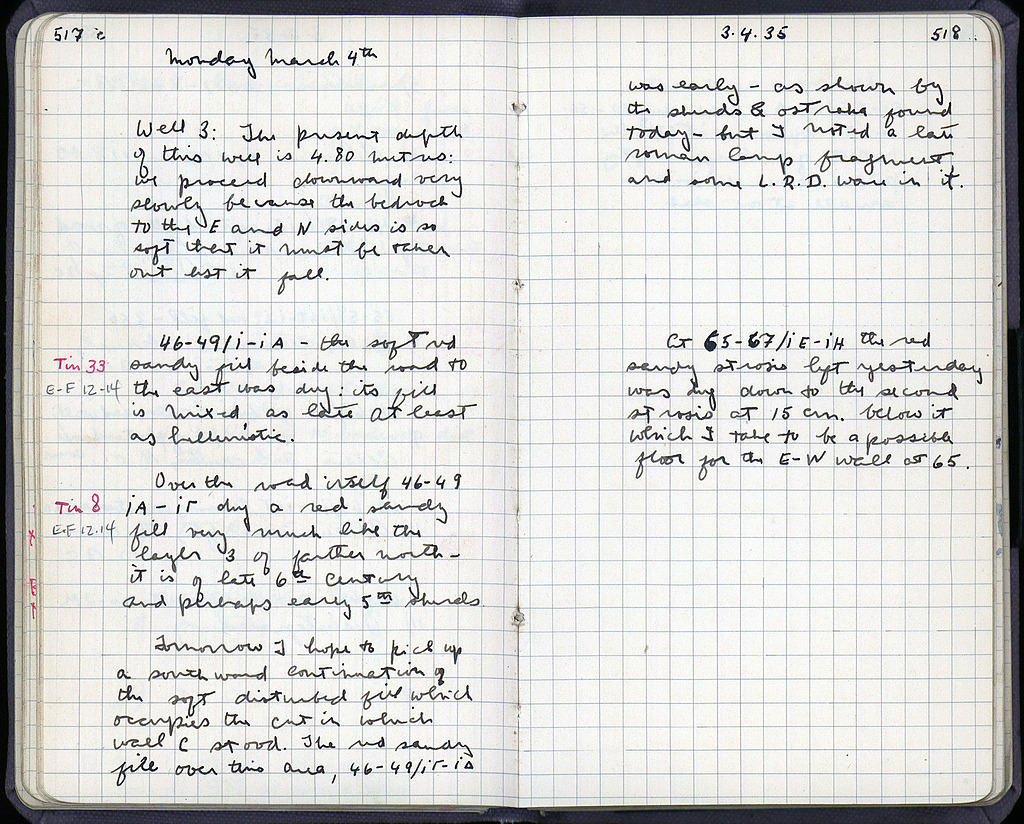 517
Monday March 4th
Well 3: The present depth
of this well is 4.80 metres:
we proceed downward very
slowly because the bedrock
to the E and N sides is so
soft that it must be taken
out lest it fall.
46-49/i-iA - the soft red
Tin 33
sandy fill beside the road to
E-F 12-14
the east was dug: its fill
is mixed as late at least
as hellenistic.
Over the road itself 46-49
Tin 8
iA-iΓ dug a red sandy
E-F 12-14
fill very much like the
x
layer 3 of farther north -
it is of late 6th century
E
and perhaps early 5th sherds.
x
Tomorrow I hope to pick up
a southward continuation of
the soft disturbed fill which
occupies the cut in which
wall C stood. The red sandy
fill over this area, 46-49/iΓ-iΔ
3.4.35
518
was early - as shown by
the sherds & ostraka found
today - but I noted a late
roman lamp fragment,
and some L.R.D. ware in it.
At 65-67/iE-iH the red
sandy strosis left yesterday
was dug down to the second
strosis at 15 cm. below it
which I take to be a possible
floor for the E-W wall at 65.